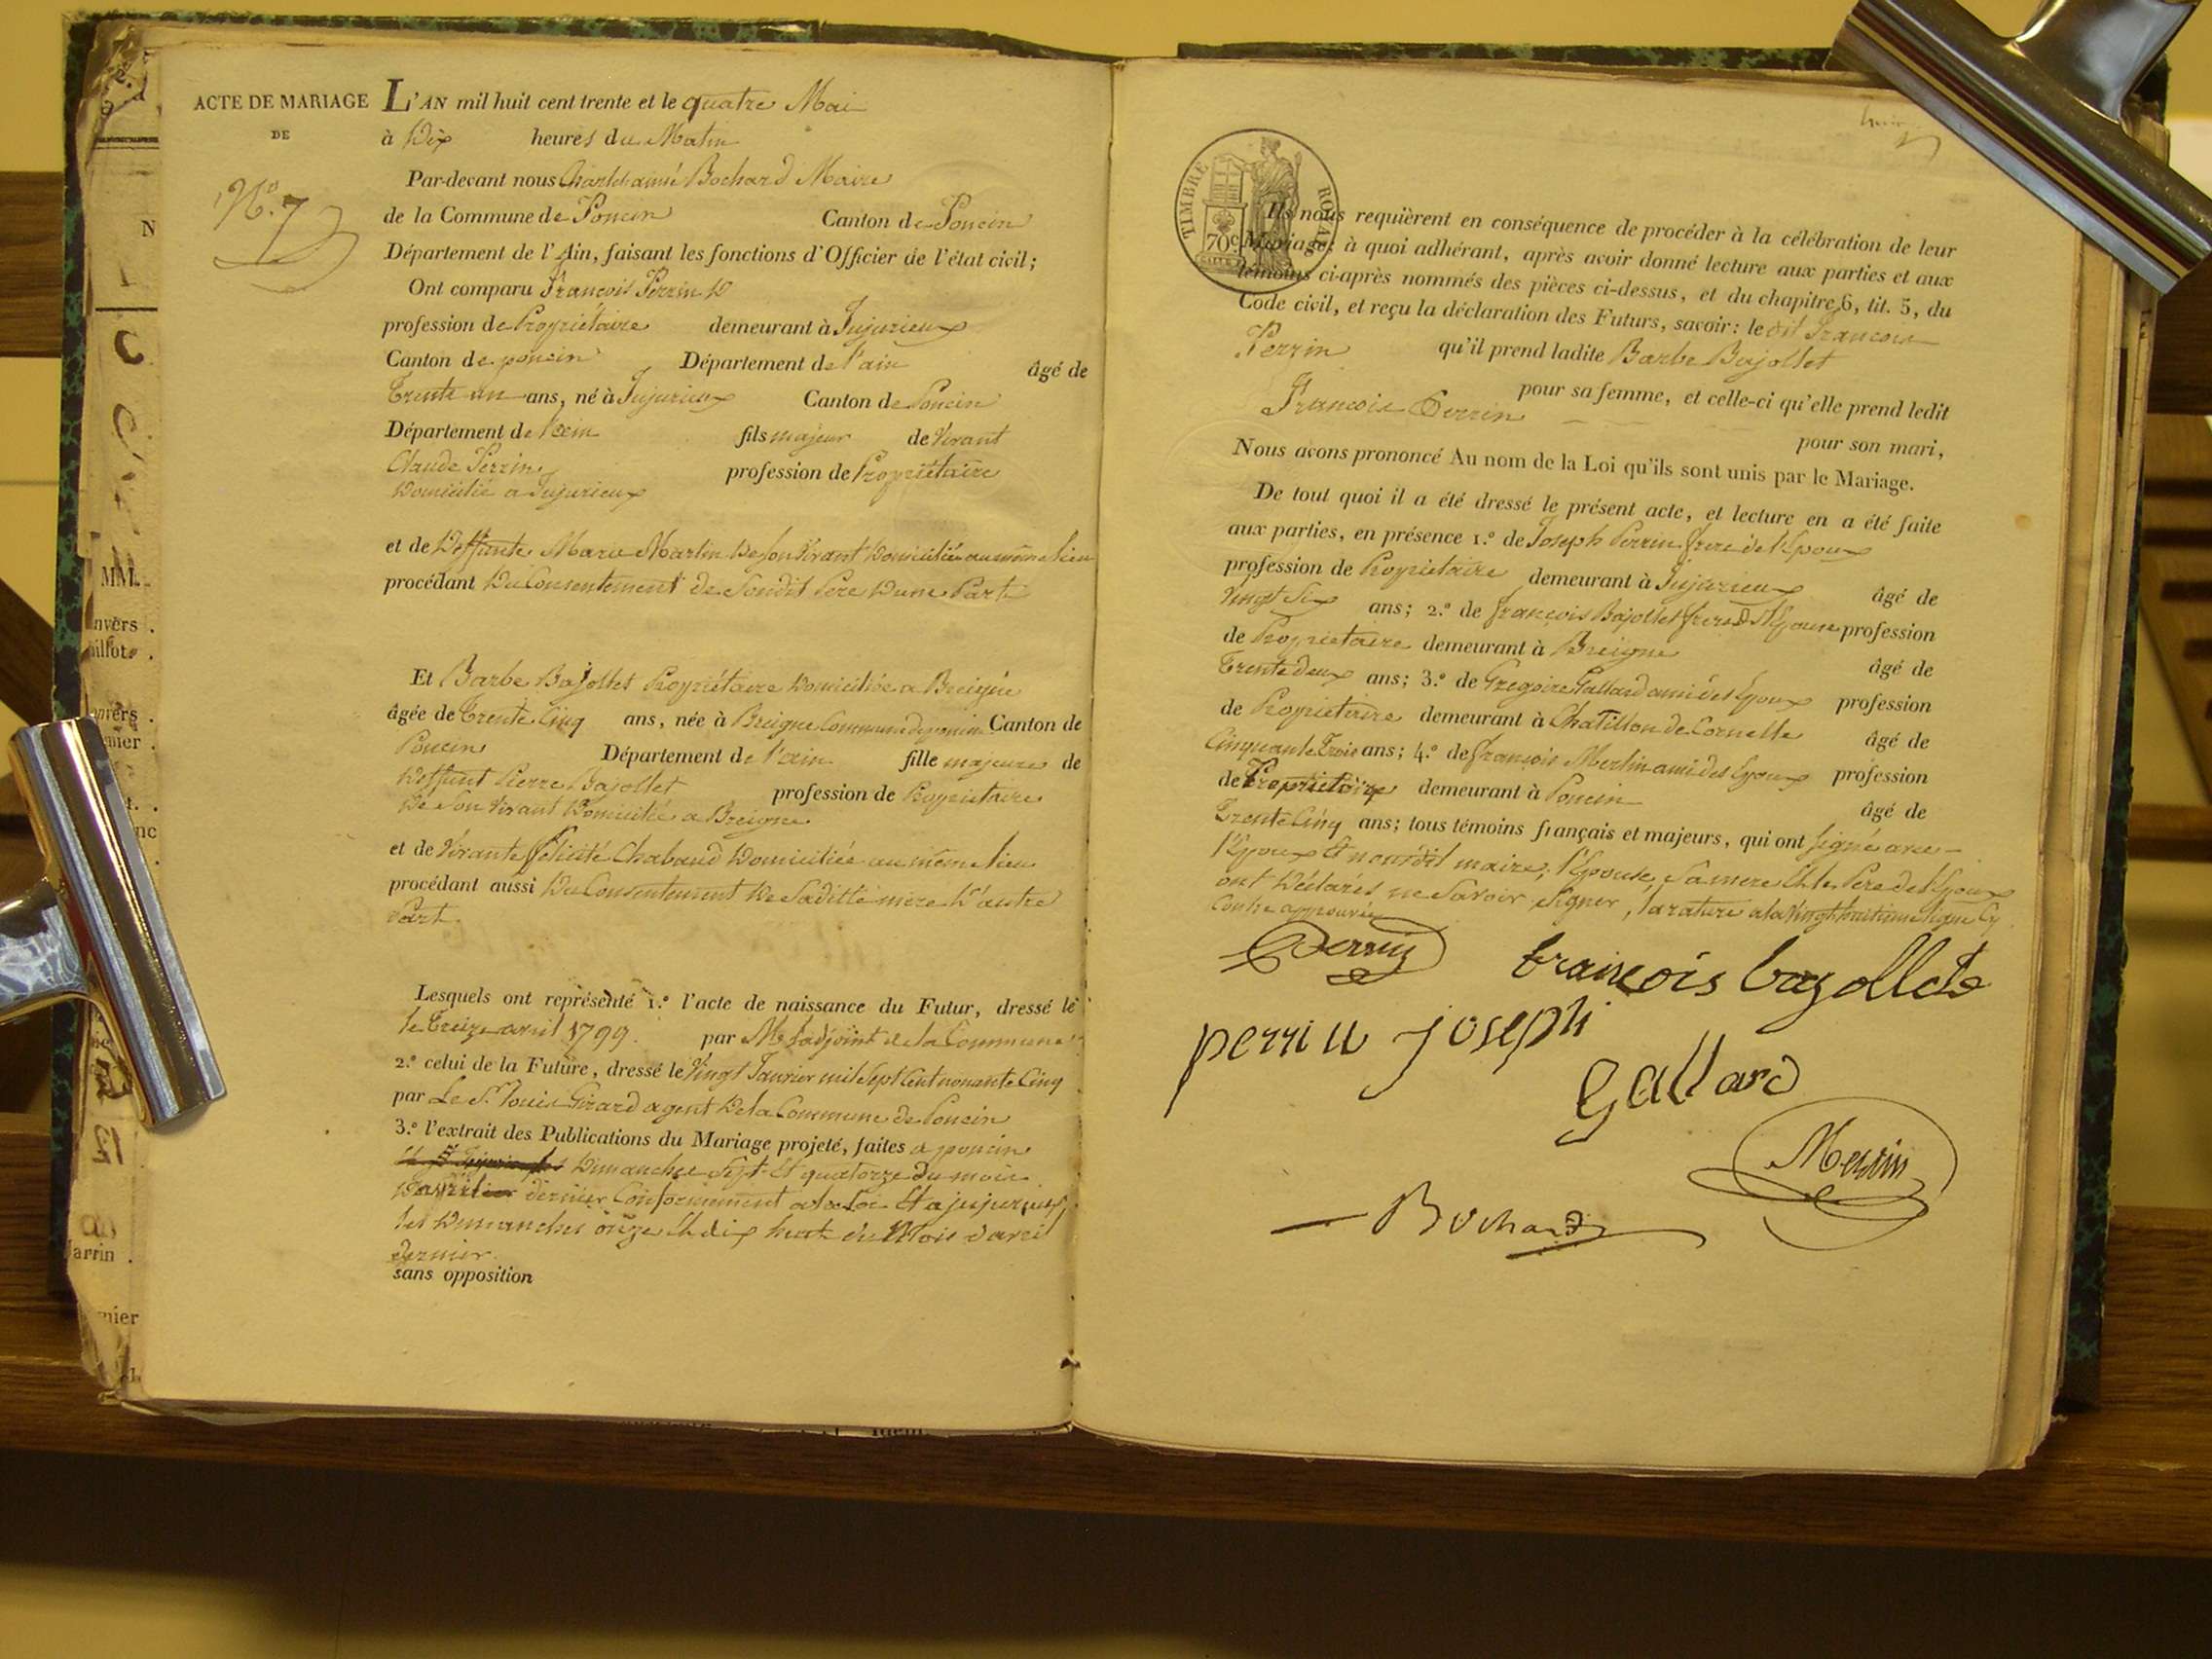 ACTE DE MARIAGE
DE
N.º 7
L'AN mil huit cent trente et le quatre Mai
à Dix heures du Matin
Par-devant nous Charles aimé Bochard Maire
de la Commune de Poncin Canton de Poncin
Département de l'Ain, faisant les fonctions d'Officier de l'état civil;
Ont comparu François Perrin
profession de Propriétaire demeurant à Jujurieux
Canton de poncin Département de l'ain âgé de
Trente un ans, né à Jujurieux Canton de Poncin
Département de l'ain fils majeur de Vivant
Claude Perrin profession de Propriétaire
Domicilié a Jujurieux
et de Deffunte Marie Martin De son Vivant Domiciliée au même lieu
procédant Du Consentement de Sondit Pere D'une Part
Et Barbe Bajollet Propriétaire Domiciliée a Breigne
âgée de Trente Cinq ans, née à Breigne Commune de poncin Canton de
Poncin Département de l'ain fille majeure de
Deffunt Pierre Bajollet profession de Propriétaire
De Son Vivant Domicilié a Breigne
et de Vivante félicité Chabaud Domiciliée au même lieu
procédant aussi Du Consentement De Saditte mere D'autre
Part.
Lesquels ont représenté 1.º l'acte de naissance du Futur, dressé le
le Treize avril 1799. par Mr l'adjoint de la Commune
2.º celui de la Future, dressé le Vingt Janvier mil Sept Cent nonante Cinq
par Le Sr. Louis Girard agent De la Commune de Poncin
3.º l'extrait des Publications du Mariage projeté, faites a poncin
Dimanches Sept Et quatorze du mois
dernier Conformément a la Loi Et a jujurieux
les Dimanches onze Et dix huit du Mois d'avril
dernier.
sans opposition
TIMBRE ROYAL
70c
Ils nous requièrent en conséquence de procéder à la célébration de leur
Mariage; à quoi adhérant, après avoir donné lecture aux parties et aux
témoins ci-après nommés des pièces ci-dessus, et du chapitre 6, tit. 5, du
Code civil, et reçu la déclaration des Futurs, savoir: le dit François
Perrin qu'il prend ladite Barbe Bajollet
pour sa femme, et celle-ci qu'elle prend ledit
François Perrin pour son mari,
Nous avons prononcé Au nom de la Loi qu'ils sont unis par le Mariage.
De tout quoi il a été dressé le présent acte, et lecture en a été faite
aux parties, en présence 1.º de Joseph Perrin frere de l'Epoux
profession de Propriétaire demeurant à Jujurieux âgé de
Vingt Six ans; 2.º de françois Bajollet frere de l'Epouse profession
de Propriétaire demeurant à Breigne âgé de
Trente deux ans; 3.º de Gregoire Gallard ami des Epoux profession
de Propriétaire demeurant à Chatillon de Cornelle âgé de
Cinquante Trois ans; 4.º de françois Merlin ami des Epoux profession
de Propriétaire demeurant à Poncin âgé de
Trente Cinq ans; tous témoins français et majeurs, qui ont Signé avec
l'Epoux Et nousdit maire, l'Epouse, Sa mere Et le Pere de l'Epoux
ont Déclarés ne Savoir Signer, la rature a la Vingt huitieme ligne Cy
Contre approuvée
Perrin
francois bajollet
perrin joseph
Gallard
Merlin
Bochard